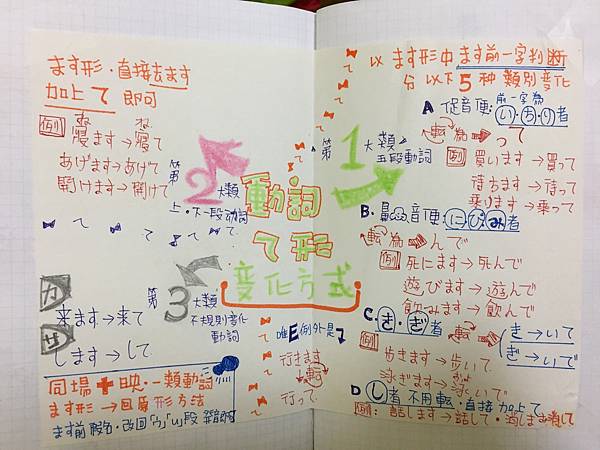 動詞
て形
変化方式
第1大類
五段動詞
以 ます形中 ます前一字判断
分 以下5种 類別变化
A 促音便:前一字為
い・ち・り者
転為→って
例 買います→買って
待ちます→待って
乗ります→乗って
B. 鼻音便:にびみ者
転為→んで
例 死にます→死んで
遊びます→遊んで
飲みます→飲んで
C. き・ぎ者 転
き→いて
ぎ→いで
例
歩きます→歩いて
泳ぎます→泳いで
D し者 不用転・直接加上て
例: 話します→話して・消します消して
唯E例外是
行きます
転
行って
第2大類
上・下一段动詞
ます形・直接去ます
加上て 即可
例
寝ます→寝て
あげます→あげて
開けます→開けて
第3大類
不規則変化
動詞
カ
来ます→来て
サ
します→して
同場+映・一類動詞
ます形→回原形方法
ます前假名・改回「う」「u」段